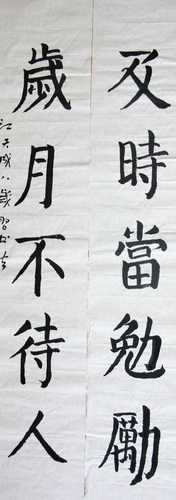 及時當勉勵
歲月不待人
江天成八歲習書